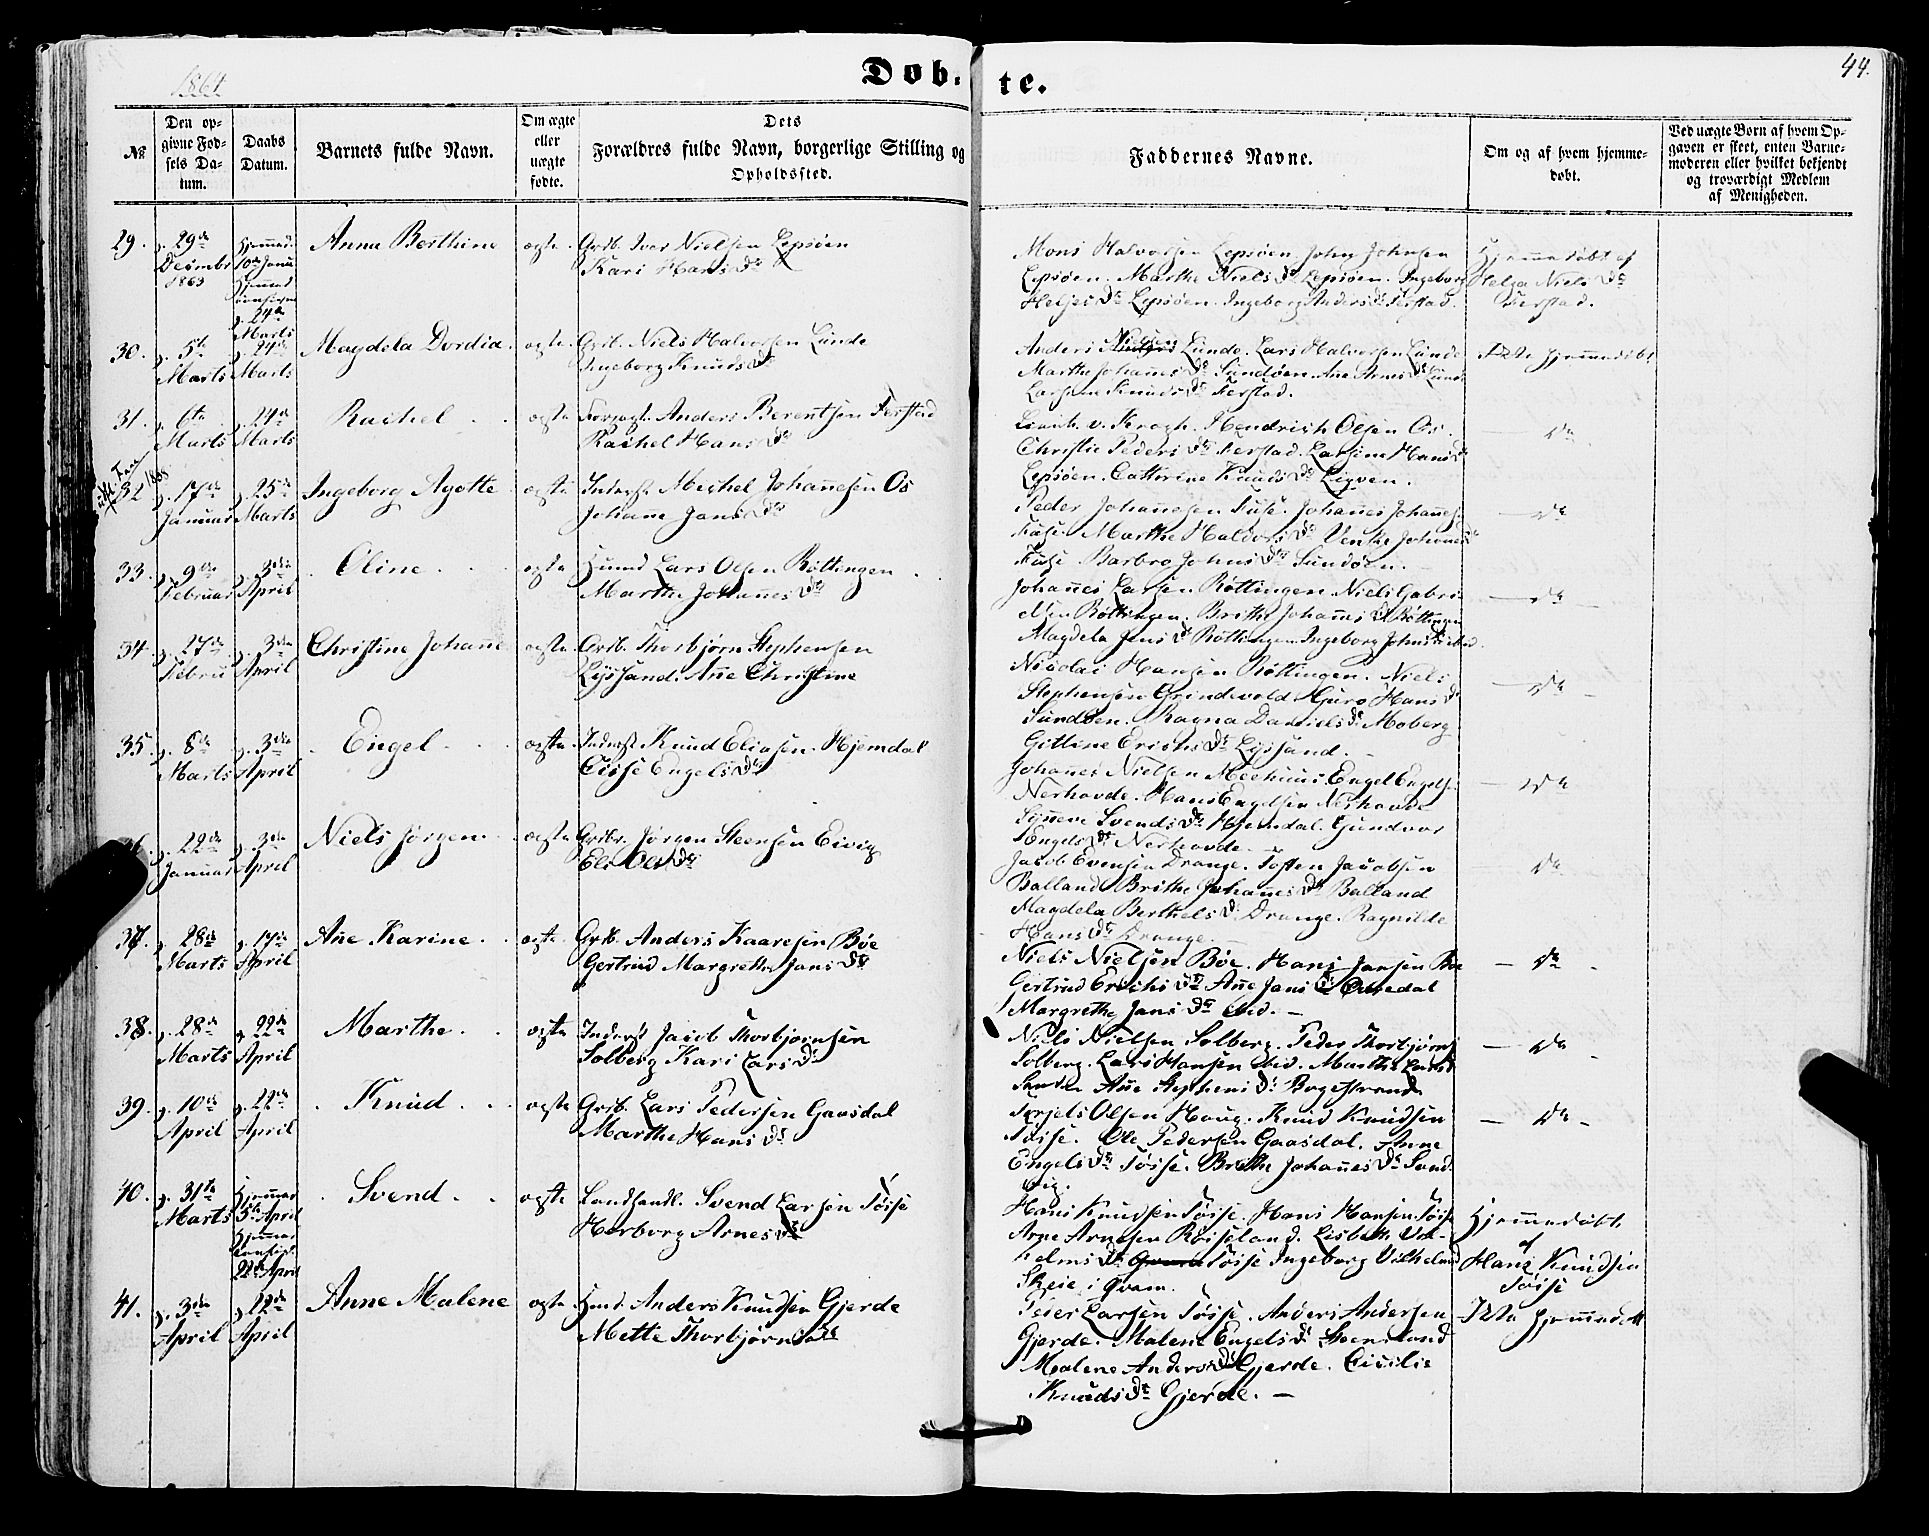 1864
Døb-
te.
44.
№
Den op-
givne Fød-
sels Da-
tum.
Daabs
Datum.
Barnets fulde Navn.
Om ægte
eller
uægte
fødte.
Dets
Forældres fulde Navn, borgerlige Stilling og
Opholdssted.
Faddernes Navne.
Om og af hvem hjemme-
døbt.
Ved uægte Børn af hvem Op-
gaven er skeet, enten Barne-
moderen eller hvilket bekjendt
og troværdigt Medlem
af Menigheden.
29.
d. 29de
Decmbr
1863
Hjemmed.
10de Janu
24de
Marts
Anna Berthine
ægte
Grdb. Iver Nielsen Lepsøen
Kari Hans Dr
Mons Halvorsen Lepsøen John Johnsen
Lepsøen. Marthe Niels Dr Lepsøen. Ingeborg
Helges Dr Lepsøen. Ingeborg Anders Dr Ferstad.
Hjemmedøbt af
Helga Niels Dr
Ferstad.
30.
d. 5te
Marts
d. 24de
Marts
Magdela Dordia.
ægte
Grdb. Niels Halvorsen Lunde
Ingeborg Knuds Dr
Anders Nielsen Lunde. Lars Halvorsen Lunde
Marthe Johannes Dr Sundøen. Ane Arnes Dr Lunde
Knuds Dr Ferstad.
Ikke hjemmedøbt
31.
d. 6te
Marts
d. 24de
Marts
Rachel
ægte
Anders Berentsen Ferstad
Rachel Hans Dr
v. Krogh. Hendrich Olsen Os.
Christie Peders Dr Ferstad. Larsine Hans Dr
Lepsøen. Catterine Knuds Dr Ligven.
do
32
d. 17de
Januar
d. 25de
Marts
Ingeborg Agotte
ægte
Inderst Michel Johannesen Os
Johanne Jans Dr
Peder Johannesen Fuse. Johannes Johannes
Fuse Marthe Haldors Dr Venche Johannes Dr
Fuse Barbro Johns Dr Sundøen.
do
33.
d. 9de
Februar
d. 3die
April
Oline
ægte
Huusmd Lars Olsen Røttingen
Marthe Johannes Dr
Johannes Larsen Røttingen. Niels Gabri-
elsen Røttingen. Brithe Johannes Dr Røttingen
Magdela Jens Dr Røttingen Ingeborg Johns Dr ibid
do
34.
d. 27de
Febru
d. 3die
April
Christine Johanne
ægte
Grdb. Thorbjørn Stephensen
Lyssand. Anne Christine
Nicolai Hansen Røttingen. Niels
Stephensen Grindevold. Guro Hans Dr
Sundøen. Ragna Daniels Dr Moberg
Gittine Erichs Dr Lyssand.
do
35.
d. 8de
Marts
d. 3die
April
Engel
ægte
Inderst Knud Eliasen. Hjemdal
Cisse Engels Dr
Johannes Nielsen Mechuus. Engel Engels
Nerhovde. Hans Engelsen Nerhovde
Synneve Svends Dr Hjemdal. Gundvor
Engels Dr Nerhovde.
do
36.
d. 22de
Januar
d. 3die
April
Niels Jørgen
ægte
Grdbr. Jørgen Steensen Eivig
Eli Ols Dr
Jacob Evensen Drange. Tosten Jacobsen
Balland Brithe Johannes Dr Balland
Magdela Berthels Dr Drange. Ragnilde
Hans Dr Drange.
do
37.
d. 28de
Marts
d. 17de
April
Ane Karine
ægte
Grdb. Anders Kaaresen Bøe
Gertrud Margrethe Jans Dr
Niels Nielsen Bøe. Hans Jansen Bøe
Gertrud Erichs Dr Anne Jans Dr
Margrethe Jans Dr ibid.
do
38.
d. 28de
Marts
d. 22de
April
Marthe
ægte
Inderst Jacob Thorbjørnsen
Solberg Kari Lars Dr
Niels Nielsen Solberg. Peder Thorbjørns
Solberg. Lars Hansen ibid. Marthe Lars Dr
Anne Stephens Dr Bogestrand
do
39.
d. 10de
April
d. 22de
April
Knud
ægte
Grdb. Lars Pedersen Gaasdal
Marthe Hans Dr
Tørjels Olsen Haug. Knud Knudsen
Tøsse. Ole Pedersen Gaasdal. Anne
Engels Dr Tøsse. Brithe Johannes Dr Sand-
vig.
do
40.
d. 31te
Marts
Hjemmed
5te April
22de April
Svend
ægte
Landhandl. Svend Larsen Tøsse
Herborg Arnes Dr
Hans Knudsen Tøsse. Hans Hansen Tøsse
Arne Arnesen Røiseland. Lisbeth Vil-
helms Dr Tøsse Ingeborg Vilhelms Dr
Skeie i Qvam.
Hjemmedøbt
af
Hans Knudsen
Tøsse
41.
d. 3die
April
d. 22de
April
Anne Malene
ægte
Husmd. Anders Knudsen Gjerde
Mette Thorbjørns Dr
Peder Larsen Tøsse. Anders Andersen
Gjerde. Malene Engels Dr Steensland
Malene Anders Dr Gjerde. Cicilie
Knuds Dr Gjerde.
Ikke hjemmedøbt